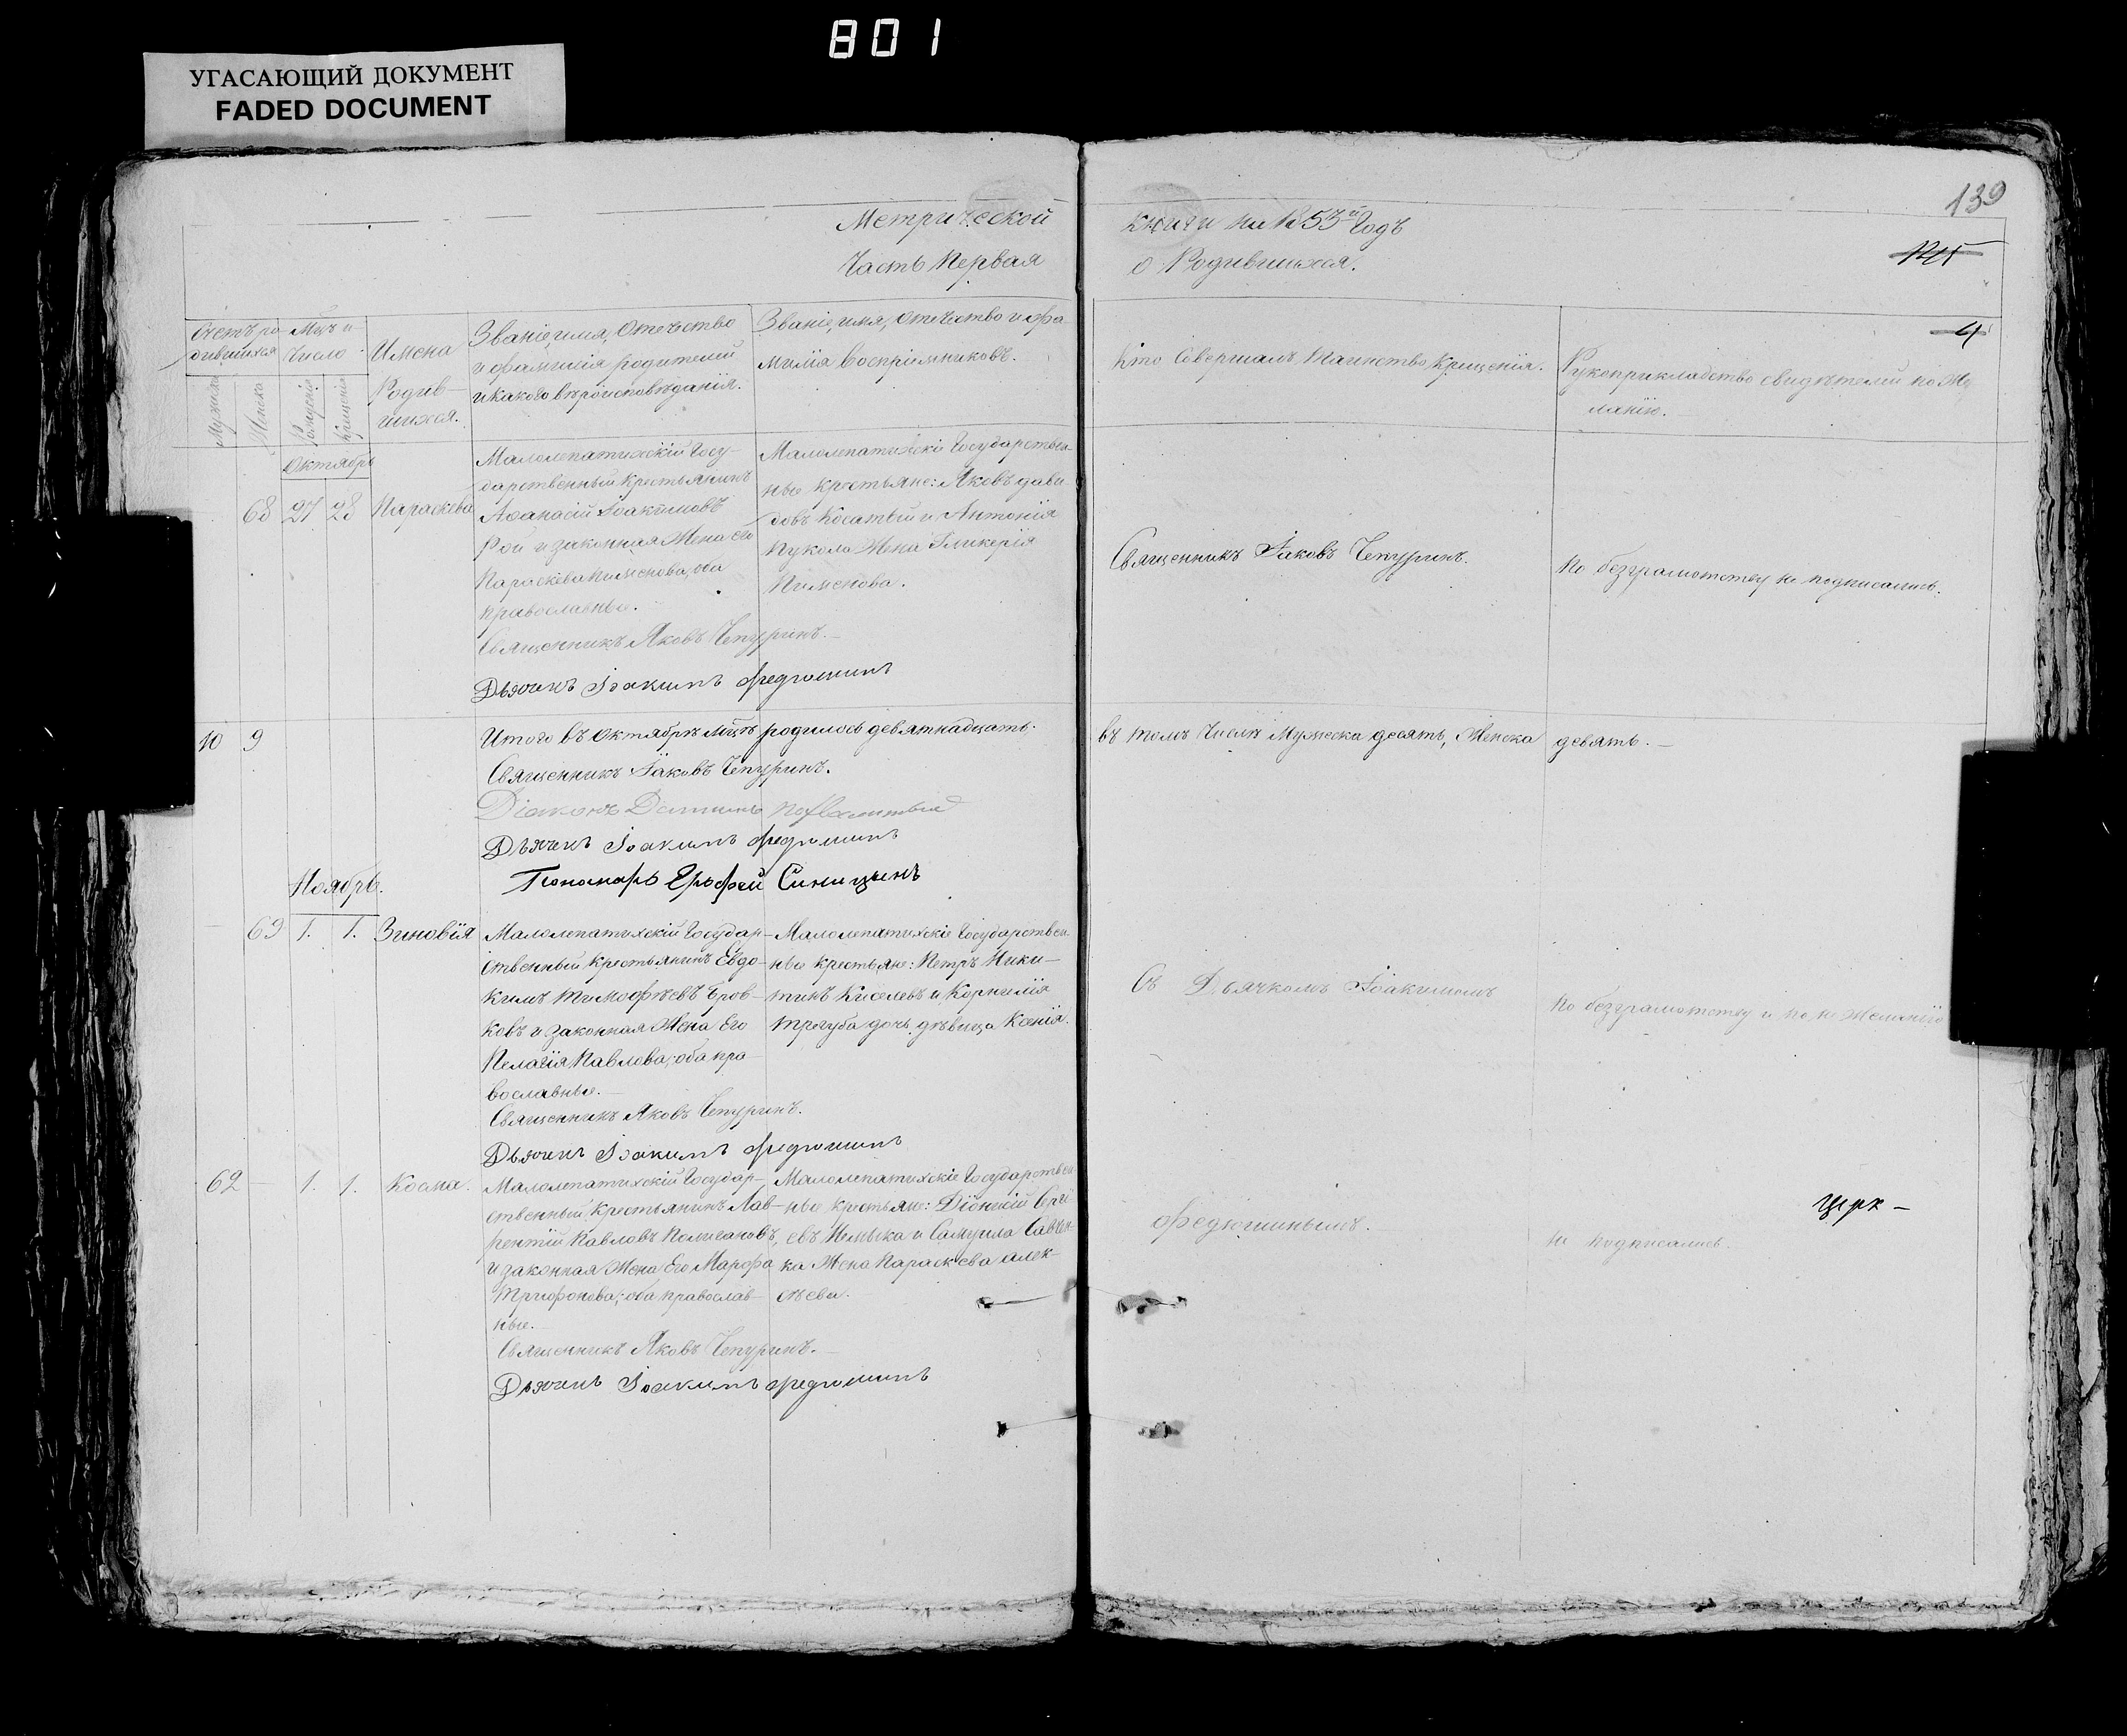 801
УГАСАЮЩИЙ ДОКУМЕНТ
FADED DOCUMENT
139
Метрической книги на 1853й Годъ
Часть Первая о Родившихся.
4
Счетъ родившихся
Мужеска
Женска
Мцъ и Число
Рожденія
Крещенія
Имена
Родив-
шихся.
Званіе, имя, Отечество
и фамилія родителей
и какого вѣроисповѣданія.
Званіе, имя, отечество и фа
милія Воспріемниковъ.
Кто Совершалъ Таинство Крещенія.
Рукоприкладство свидѣтелей по Же
ланію.
Октябрь
68 27 28 Параскева
Малолепатихскій Госу-
дарственный Крестьянинъ
Аѳанасій Іоакимовъ
Рой и законная Жена его
Параскева Пименова, оба
православные.
Священникъ Яковъ Чепуринъ.
Дьячекъ Іоакимъ Федюшинъ
Малолепатихскіе Государствен-
ные крестьяне: Яковъ Дави
довъ Косатый и Антонія
Пукола Жена Гликерія
Пименова.
Священникъ Іаковъ Чепуринъ.
По безграмотству не подписались.
10 9 Итого въ Октябрѣ мцѣ родилось девятнадцать. въ томъ Числѣ Мужеска десять, Женска девять.
Священникъ Іаковъ Чепуринъ.
Діаконъ
Дьячекъ Іоакимъ Федюшинъ
Пономарь Ерофей Синицынъ
Ноябрь.
69 1. 1. Зиновія
Малолепатихскій Государ-
ственный Крестьянинъ Евдо-
кимъ Тимофѣевъ Еров-
ковъ и законная Жена Его
Пелагія Павлова; оба пра-
вославные.
Священникъ Яковъ Чепуринъ.
Дьячекъ Іоакимъ Федюшинъ
Малолепатихскіе Государствен
ные крестьяне: Петръ Ники-
тинъ Киселевъ и Корнилія
Трегуба дочь дѣвица Ксенія.
Съ Дьячкомъ Іоакимомъ
По безграмотству и по не Желанію
62 1. 1. Косма.
Малолепатихскій Государ-
ственный Крестьянинъ Лав-
рентій Павловъ Полисановъ,
и законная Жена Его Марфа
Трифонова; оба православ-
ные.
Священникъ Яковъ Чепуринъ.
Дьячекъ Іоакимъ Федюшинъ
Малолепатихскіе Государствен
ные крестьяне: Діонисій Серге
евъ и Самуила Савчен-
ка Жена Параскева Алек-
сѣева.
Федюшинымъ.
не подписались
Церк-